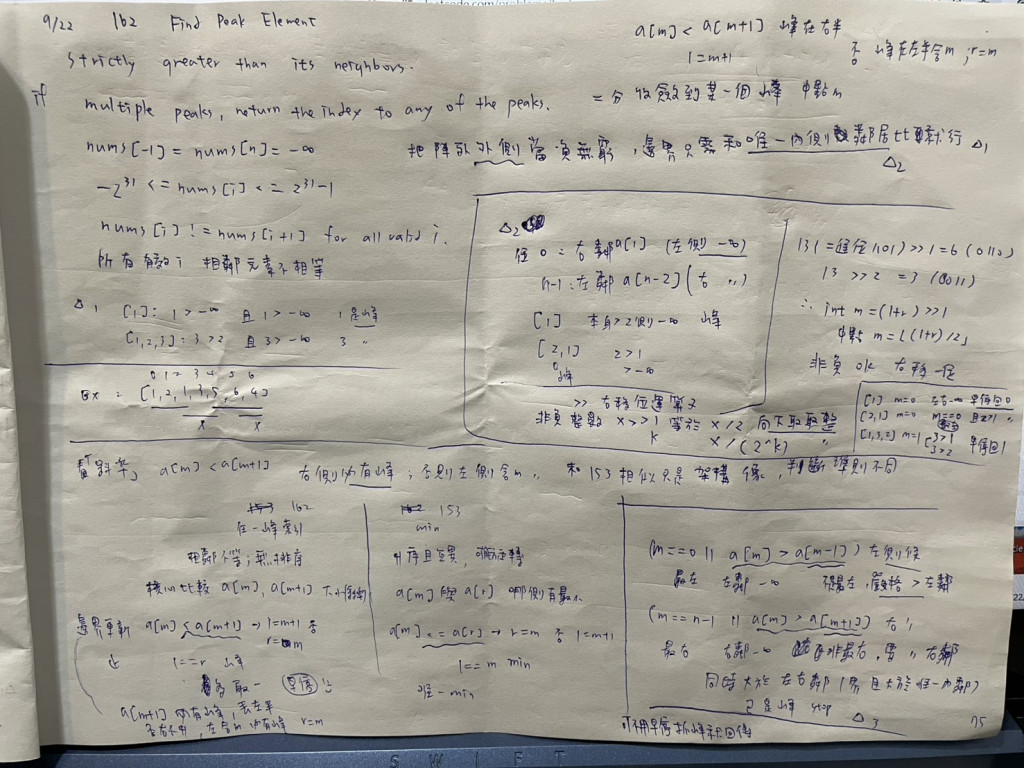 9/22 162 Find Peak Element
strictly greater than its neighbors.
if multiple peaks, return the index to any of the peaks.
nums[-1] = nums[n] = -∞
-2^31 <= nums[i] <= 2^31-1
nums[i] != nums[i+1] for all valid i.
所有有效 i 相鄰元素不相等
a[m] < a[m+1] 峰在右半
l=m+1
否 峰在左半含m, r=m
二分收斂到某一個峰 中點m
把陣列外側當負無窮, 邊界只需和唯一內側鄰居比較就行 △1
△2
△1 [1]: 1 > -∞ 且 1 > -∞ 1是峰
[1,2,3]: 3 > 2 且 3 > -∞ 3 "
0 1 2 3 4 5 6
Ex = [1,2,1,3,5,6,4]
△2
0 = 右鄰 a[1] (左側 -∞)
n-1: 左鄰 a[n-2] (右 ")
[1] 本身 > 2側 -∞ 峰
[2,1] 2 > 1
0 峰 > -∞
>> 右移位運算子
非負整數 x >> 1 等於 x/2 向下取整
k x/(2^k) "
1101 >> 1 = 6 (0110)
13 >> 2 = 3 (0011)
∴ int m = (l+r) >> 1
中點 m = ⌊(l+r)/2⌋
非負 ok 右移一位
[1] m=0 左右 -∞ 早停回0
[2,1] m=0 m==0 且 2>1 "
[1,3,2] m=1 3>1 3>2 早停回1
看「斜率」 a[m] < a[m+1] 右側必有峰; 否則左側含m " 和153相似只是架構像, 判斷準則不同
162
任一峰索引
相鄰不等; 無排序
核心比較 a[m], a[m+1]
邊界更新 a[m] < a[m+1] → l=m+1 否 r=m
止 l==r 峰
早停
a[m+1] 必有峰, 丟左半
r=m
153
min
升序且互異, 可旋轉
a[m] 與 a[r] 哪側有最小
a[m] <= a[r] → r=m 否 l=m+1
l==m min
唯一 min
(m==0 || a[m] > a[m-1]) 左側
最左 左鄰 -∞ 不是左, 嚴格 > 左鄰
(m==n-1 || a[m] > a[m+1]) 右 "
最右 右鄰 -∞ 非最右, 要 " 右鄰
同時大於左右鄰
已是峰 stop
△3
可用早停抓峰就回傳
75
SWIFT